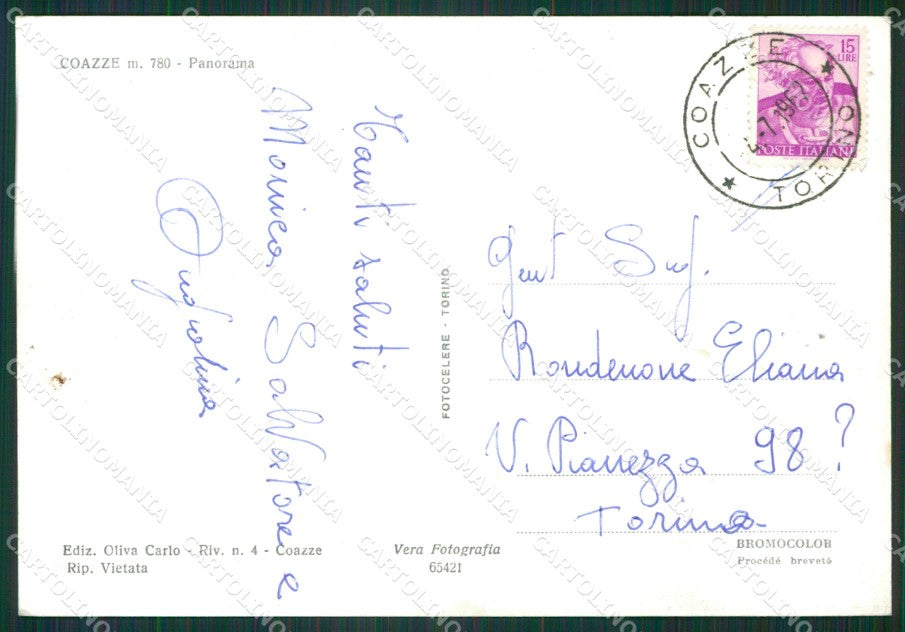 COAZZE m. 780 - Panorama
Tanti saluti
Monica Salvatore e
Angiolina
Ediz. Oliva Carlo - Riv. n. 4 - Coazze
Rip. Vietata
Vera Fotografia
65421
FOTOCELERE - TORINO
15
LIRE
POSTE ITALIANE
COAZZE
TORINO
7.1967
Gent Sig.
Rondenone Eliana
V. Pianezza 98?
Torino
BROMOCOLOR
Procédé breveté
CARTOLINOMANIA